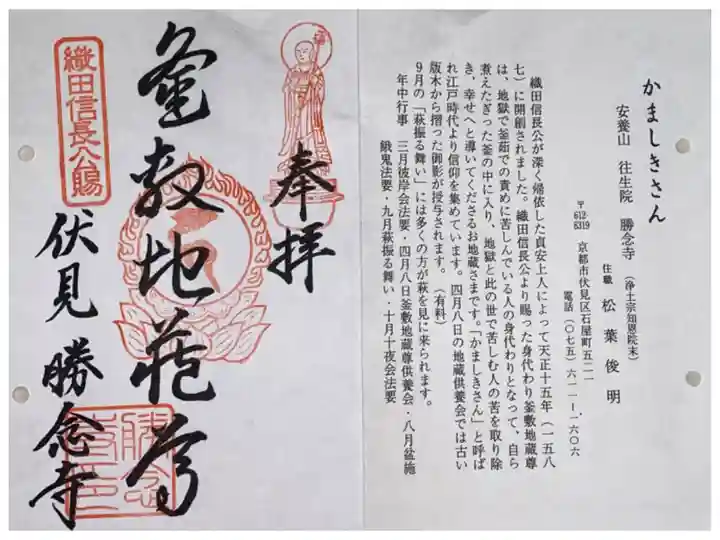 奉拝
釜敷地蔵尊
織田信長公賜
伏見 勝念寺
かましきさん
安養山 往生院 勝念寺 (浄土宗知恩院末)
住職 松葉俊明
〒612-8319 京都市伏見区石屋町五二一
電話(〇七五)六一一-一六〇六
織田信長公が深く帰依した貞安上人によって天正十五年(一五八
七)に開創されました。織田信長公より賜った身代わり釜敷地蔵尊
は、地獄で釜茹での責めに苦しんでいる人の身代わりとなって、自ら
煮えたぎった釜の中に入り、地獄と此の世で苦しむ人の苦を取り除
き、幸せへと導いてくださるお地蔵さまです。「かましきさん」と呼ば
れ江戸時代より信仰を集めています。四月八日の地蔵供養会では古い
版木から摺った御影が授与されます。(有料)
9月の「萩振る舞い」には多くの方が萩を見に来られます。
年中行事 三月彼岸会法要・四月八日釜敷地蔵尊供養会・八月盆施
餓鬼法要・九月萩振る舞い・十月十夜会法要